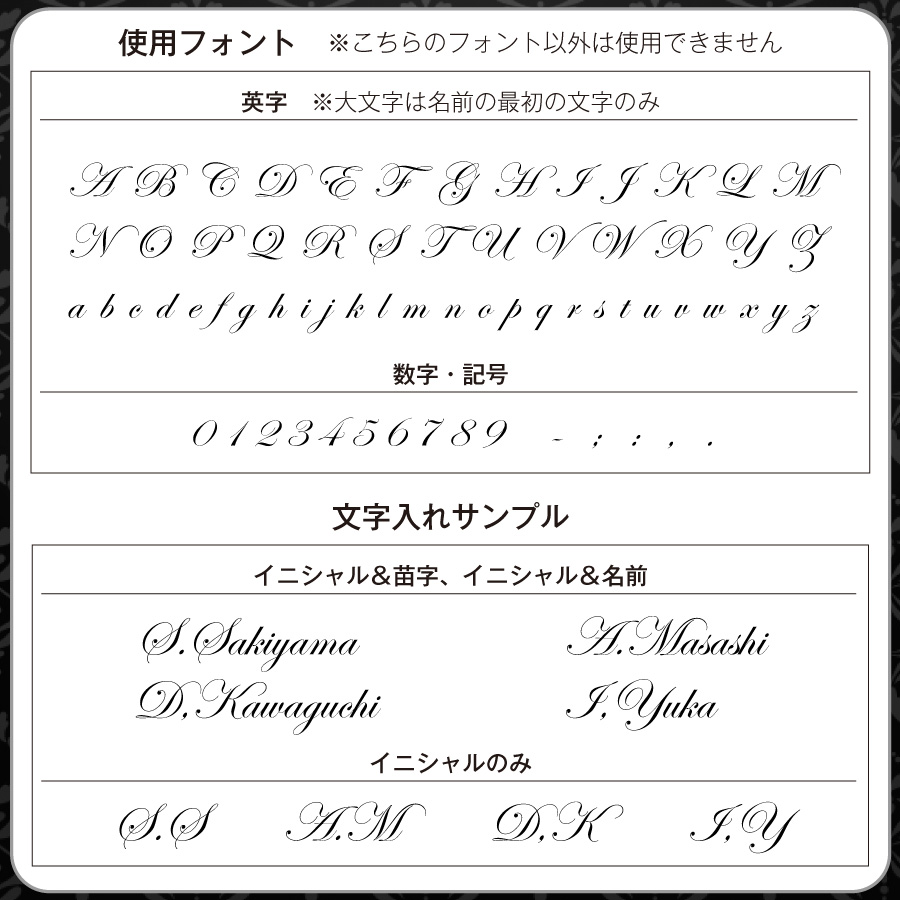 使用フォント ※こちらのフォント以外は使用できません
英字 ※大文字は名前の最初の文字のみ
A B C D E F G H I J K L M
N O P Q R S T U V W X Y Z
a b c d e f g h i j k l m n o p q r s t u v w x y z
数字・記号
0 1 2 3 4 5 6 7 8 9 - ; : , .
文字入れサンプル
イニシャル&苗字、イニシャル&名前
S.Sakiyama A.Masashi
D,Kawaguchi I,Yuka
イニシャルのみ
S.S A.M D,K I,Y